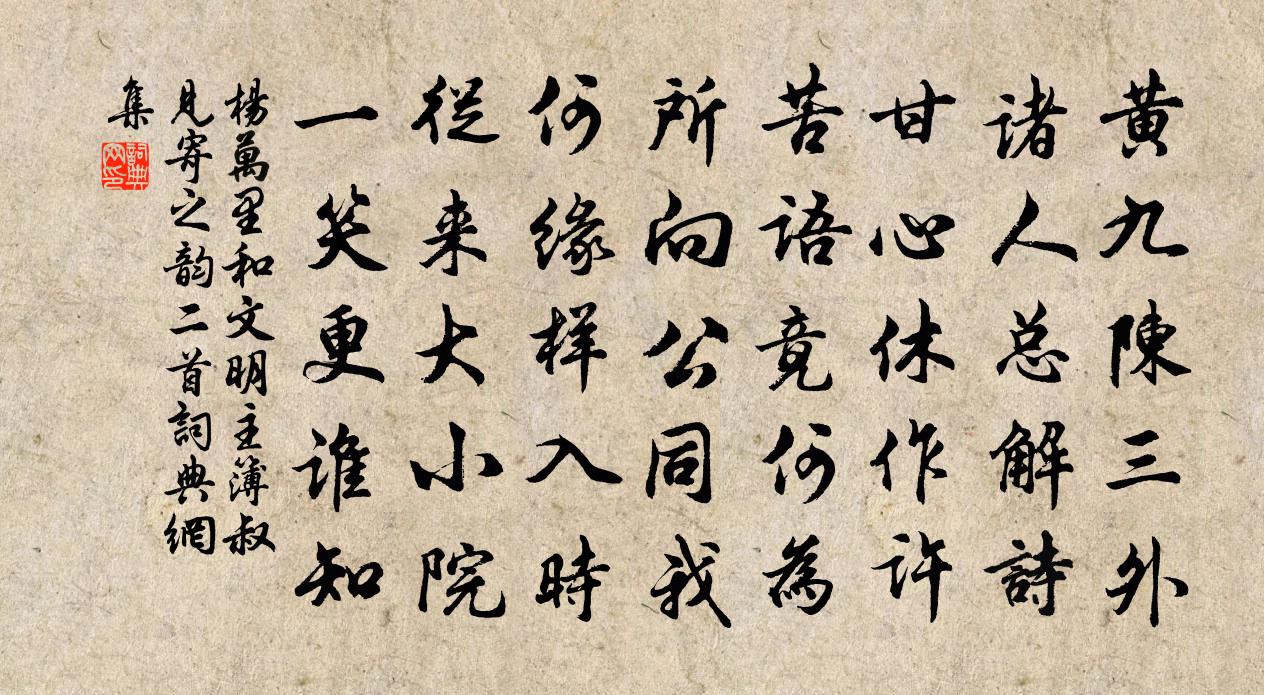 黄九陳三外
諸人总解詩
甘心休作許
苦語竟何為
所向公同我
何缘样入時
從来大小院
一笑更誰知
楊萬里和文明主簿叔
見寄之韵二首詞典網
集
詞典
网印